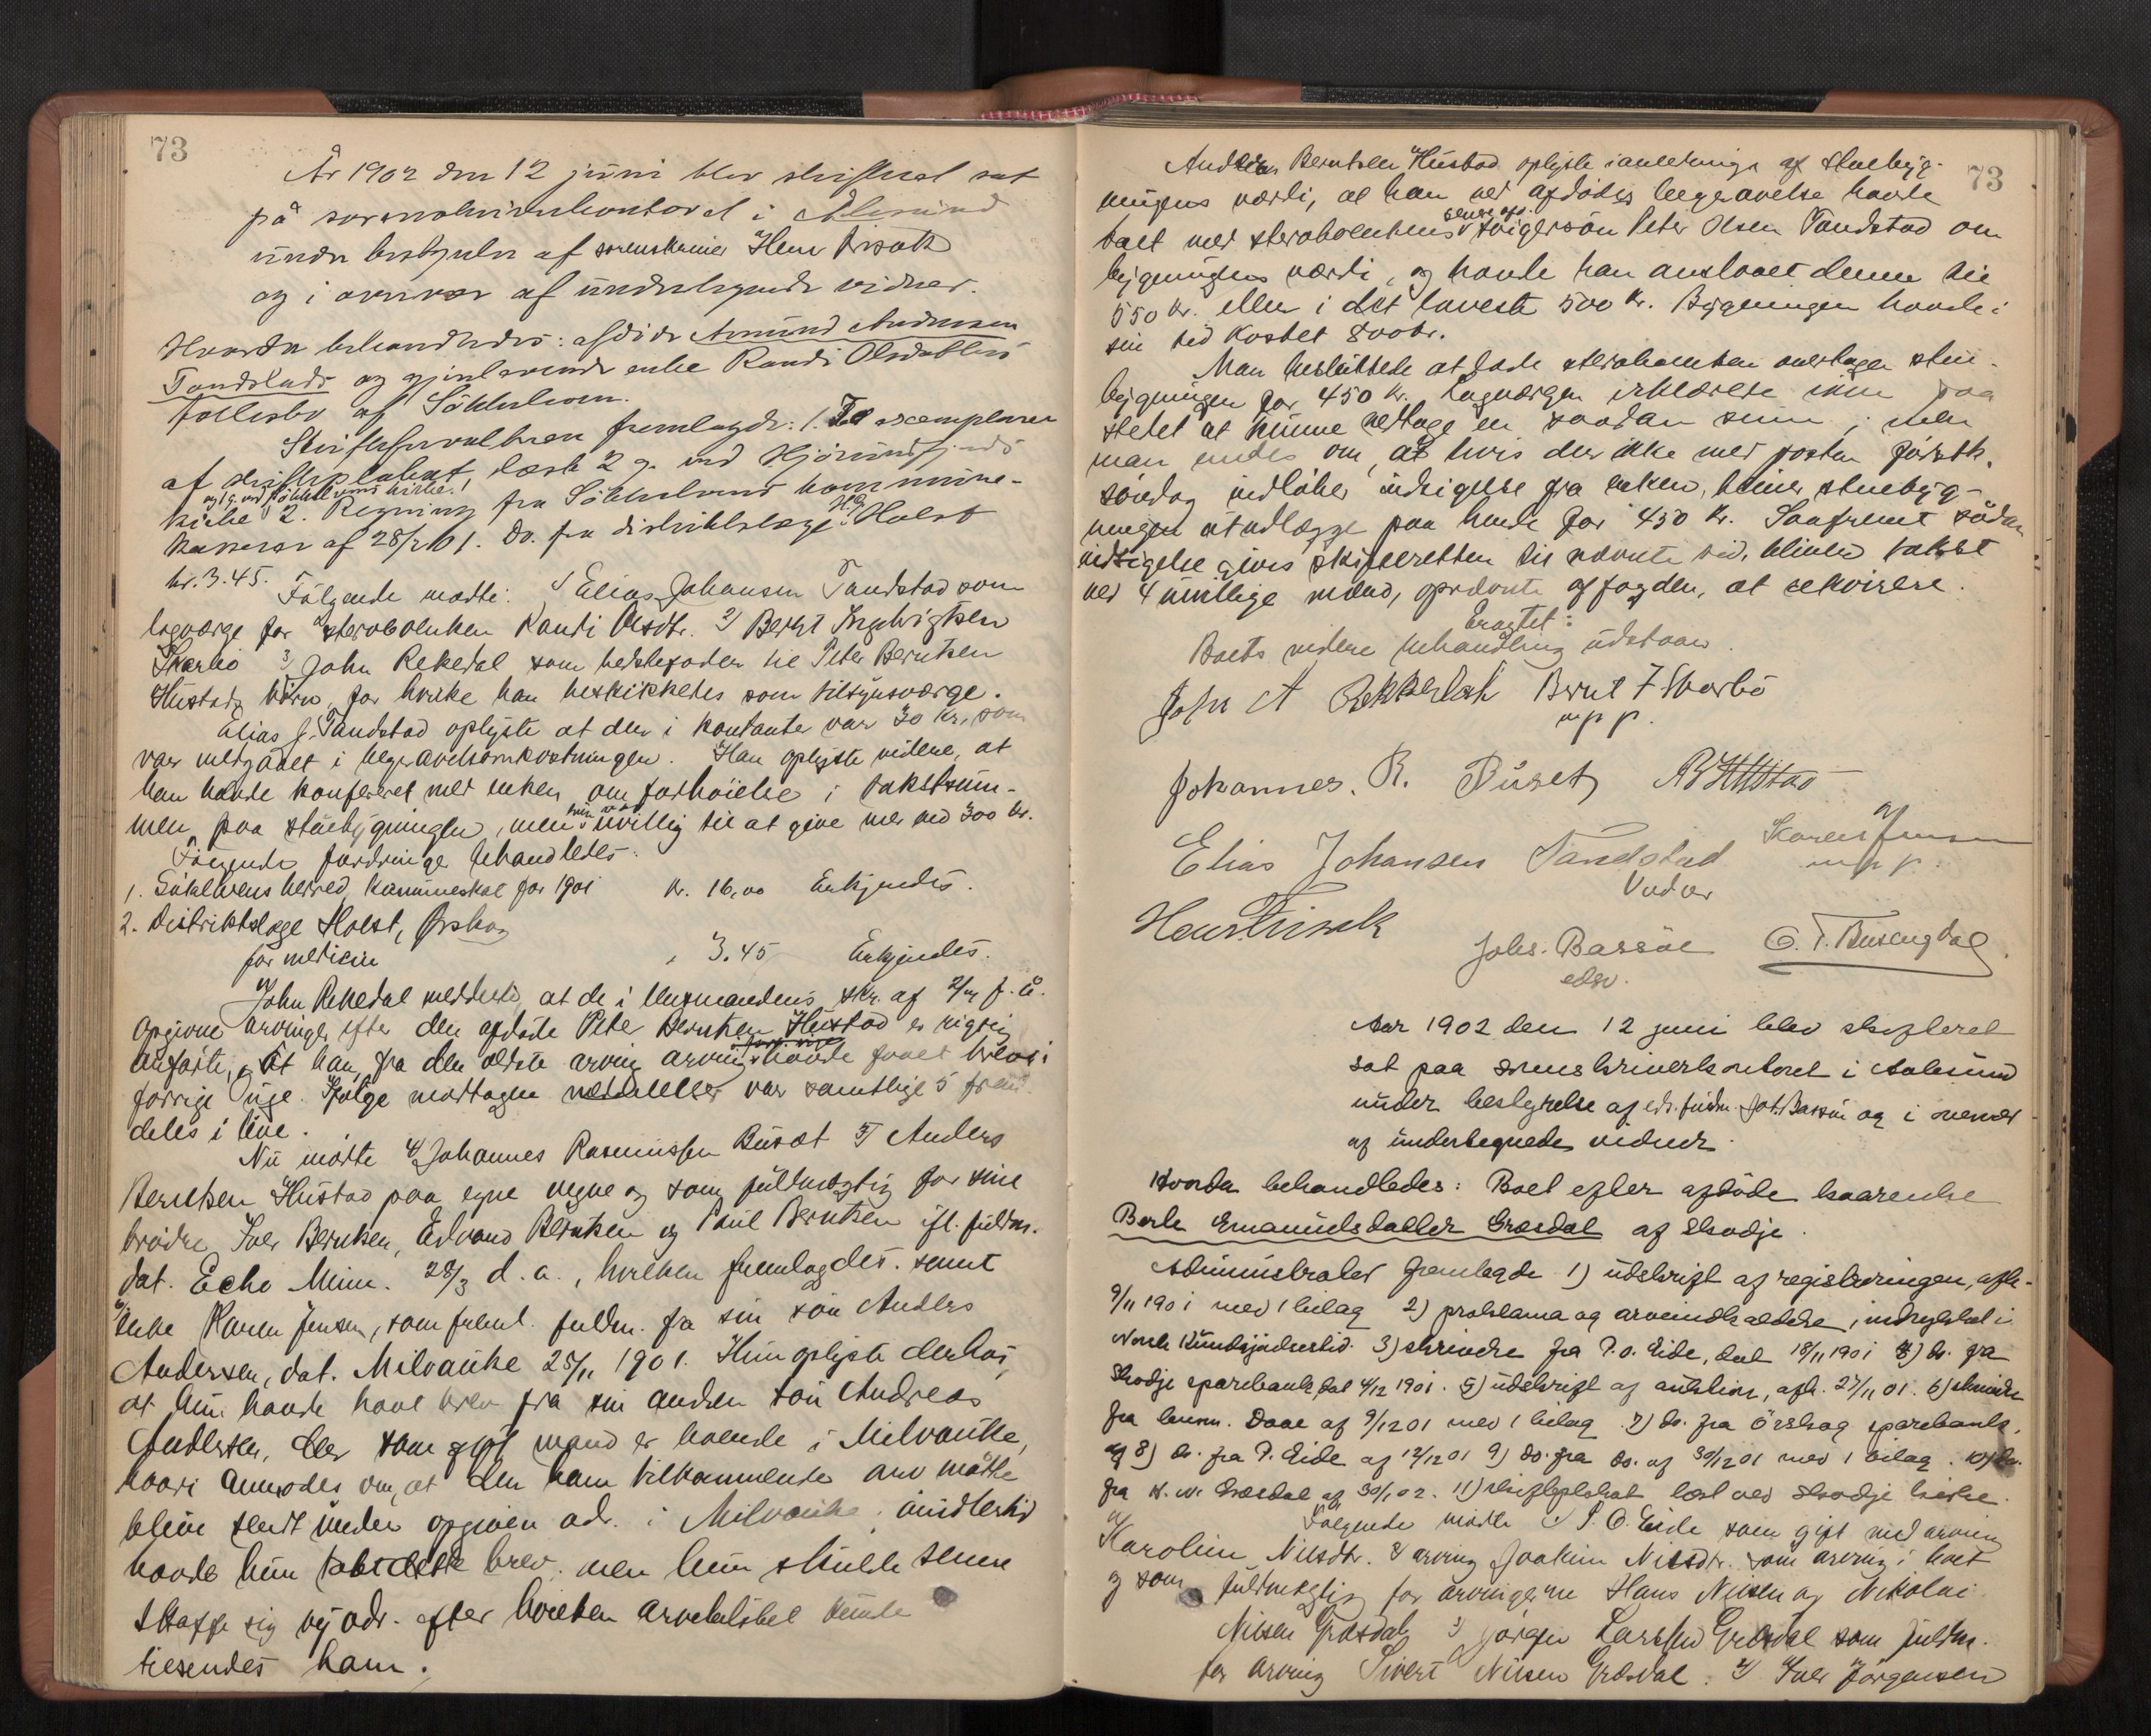 73
År 1902 den 12 juni blev skifteret sat
på sorenskriverkontoret i Ålesund
under bestyrelse af sorenskriver Henr Finsok
og i overvær af undertegnede vidner.
Hvorda behandledes: afdøde Amund Andersen
Tandstads og gjenlevende enke Randi Olsdatters
fællesbo af Søkkelven.
Skifteforvalteren fremlagde: 1. To exemplarer
af skifteplakat, læste 2 g. ved Hjørundfjords
og 1 g. ved Søkkelvens kirke.
kirke 2. Regning fra Søkkelvens kommune-
kasserer af 28/2 01. Do. fra distriktslæge H. Holst
kr. 3.45.
Følgende mødte: 1/ Elias Johansen Tandstad som
lagværge for sterboenken Randi Olsdtr. 2/ Bernt Ingebrigtsen
Skarbø 3/ John Rekedal som bedstefader til Peter Berntsen
Hustads børn, for hvilke han beskikkedes som tilsynsværge.
Elias J. Tandstad oplyste at der i kontanter var 30 kr. som
var medgaaet i begravelsomkostningen. Han oplyste videre, at
han havde konfereret med enken om forhøielse i takstsum-
men paa stuebygningen, men hun var uvillig til at give mer end 300 kr.
Følgende fordringer behandledes:
1. Søkelvens herred, kommuneskat for 1901 kr. 16,00 Erkjendes.
2. Distriktslæge Holst, Ørskog
for medicin " 3.45 Erkjendes.
John Rekedal meddelte, at de i lensmandens skr. af f. å.
opgivne arvinger efter den afdøde Peter Berntsen Hustad er rigtig
anførte, og at han fra den ældste arving havde faaet brev i
forrige uge. Ifølge modtagen meddelelser var samtlige 5 frem-
deles i live.
Nu mødte 4/ Johannes Rasmussen Buset 5/ Anders
Berntsen Hustad paa egne vegne og som fuldmægtig for sine
brødre Iver Berntsen, Edvard Berntsen og Paul Berntsen ifl. fuldm.
dat. Echo Minn. 28/3 d. a., hvilken fremlagdes. samt
6/ enke Karen Jensen, som freml. fuldm. fra sin søn Anders
Andersen, dat. Milvauke 25/11 1901. Hun oplyste derhos,
at hun havde havt brev fra sin anden søn Andreas
Andersen, der som gift mand er boende i Milvauke,
hvori anmodes om, at den ham tilkommende arv måtte
blive sendt under opgiven adr. i Milvauke; imidlertid
havde hun tabt dette brev, men hun skulde senere
skaffe sig ny adr. efter hvilken arvebeløbet kunde
tilsendes ham.
73
Anders Berntsen Hustad oplyste i anledning af stuebyg-
ningens værdi, at han ved afdødes begravelse havde
talt med sterboenkens svigersøn Peter Olsen Tandstad om
bygningens værdi, og havde han anslaaet denne til
550 kr. eller i det laveste 500 kr. Bygningen havde i
sin tid kostet 800 kr.
Man besluttede at lade sterboenken overtage stue-
bygningen for 450 kr. Lagværgen erklærede ikke paa
stedet at kunne vedtage en saadan sum; men
man enedes om, at hvis der ikke med posten førstk.
søndag indløber indsigelse fra enken, bliver stuebyg-
ningen at udlægge paa hende for 450 kr. Saafremt sådan
indsigelse gives skifteretten til nævnte tid, bliver takst
ved 4 uvillige mænd, opnævnte af fogden, at rekvirere.
Eragtet:
Boets videre behandling udstaar.
John A Rekkedal Bernt I Skarbø
m p p.
Johannes. R. Buset AB Hustad
Elias Johansen Tandstad Karen Jensen
m p p.
Vidner
Henr. Finsok
Johs. Bassøe
edsv.
Aar 1902 den 12 juni blev skifteret
sat paa sorenskriverkontoret i Aalesund
under bestyrelse af eds. fuldm. Joh. Bassøe og i overvær
af undertegnede vidner.
Hvorda behandledes: Boet efter afdøde kaarenke
Berte Emanuelsdatter Græsdal af Skodje.
Administrator fremlagde 1) udskrift af registreringen, afh.
9/11 1901 med 1 bilag 2) proklama og arveindkaldelse, indrykket i
Norsk Kundgjørelsestid. 3) skrivelse fra P. O. Eide, dat 18/11 1901 4) do. fra
Skodje sparebank, dat 4/12 1901. 5) udskrift af auktion, afh. 27/11 01. 6) skrivelse
fra lensm. Daae af 9/12 01 med 1 bilag. 7) do. fra Ørskog sparebank,
og 8) do. fra P. Eide af 12/12 01 9) do. fra do. af 30/12 01 med 1 bilag. 10) do.
fra N. N. Græsdal af 30/1 02. 11) skifteplakat læst ved Skodje kirke.
Følgende mødte 1/ P. O. Eide som gift med arving
Karoline Nilsdtr. 2/ arving Joakim som arving i boet
og som fuldmægtig for arvingerne Hans Nilsen og Nikolai
Nilsen Græsdal 3/ Jørgen Larsen Græsdal som fuldm.
for arving Sivert Nilsen Græsdal. 4/ Iver Jørgensen